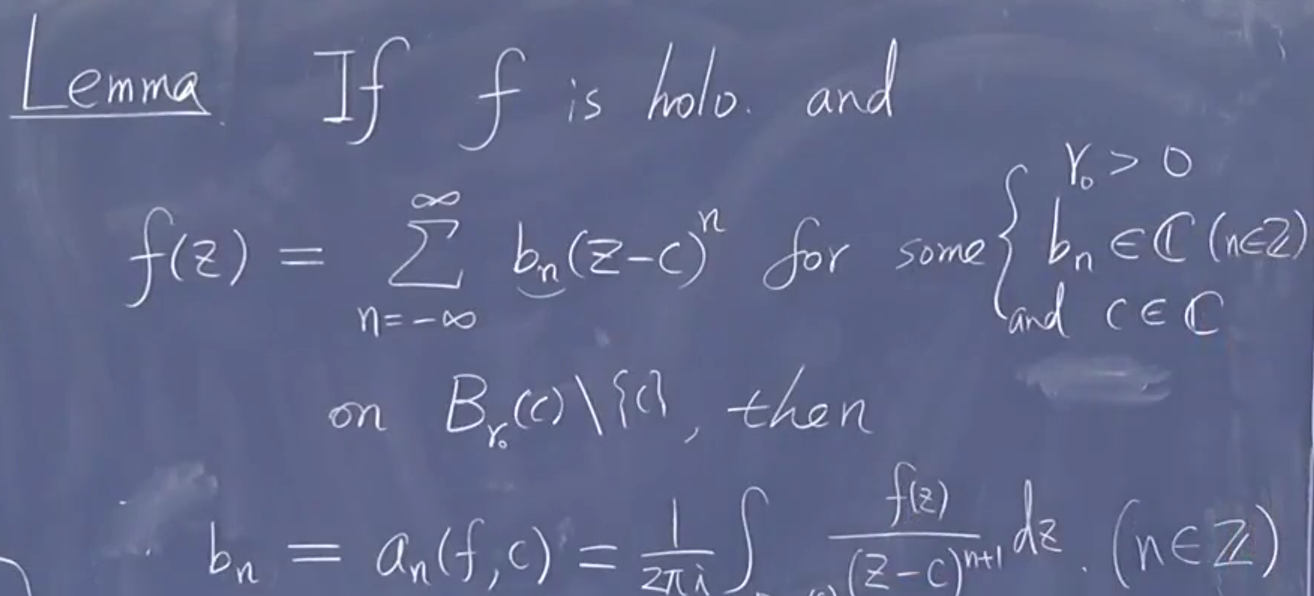 Lemma If f is holo. and
f(z) = \sum_{n=-\infty}^{\infty} b_n (z-c)^n for some { r_0 > 0
b_n ∈ ℂ (n∈ℤ)
and c ∈ ℂ
on B_{r_0}(c) \ {c}, then
b_n = a_n(f,c) = \frac{1}{2\pi i} \int \frac{f(z)}{(z-c)^{n+1}} dz. (n∈ℤ)